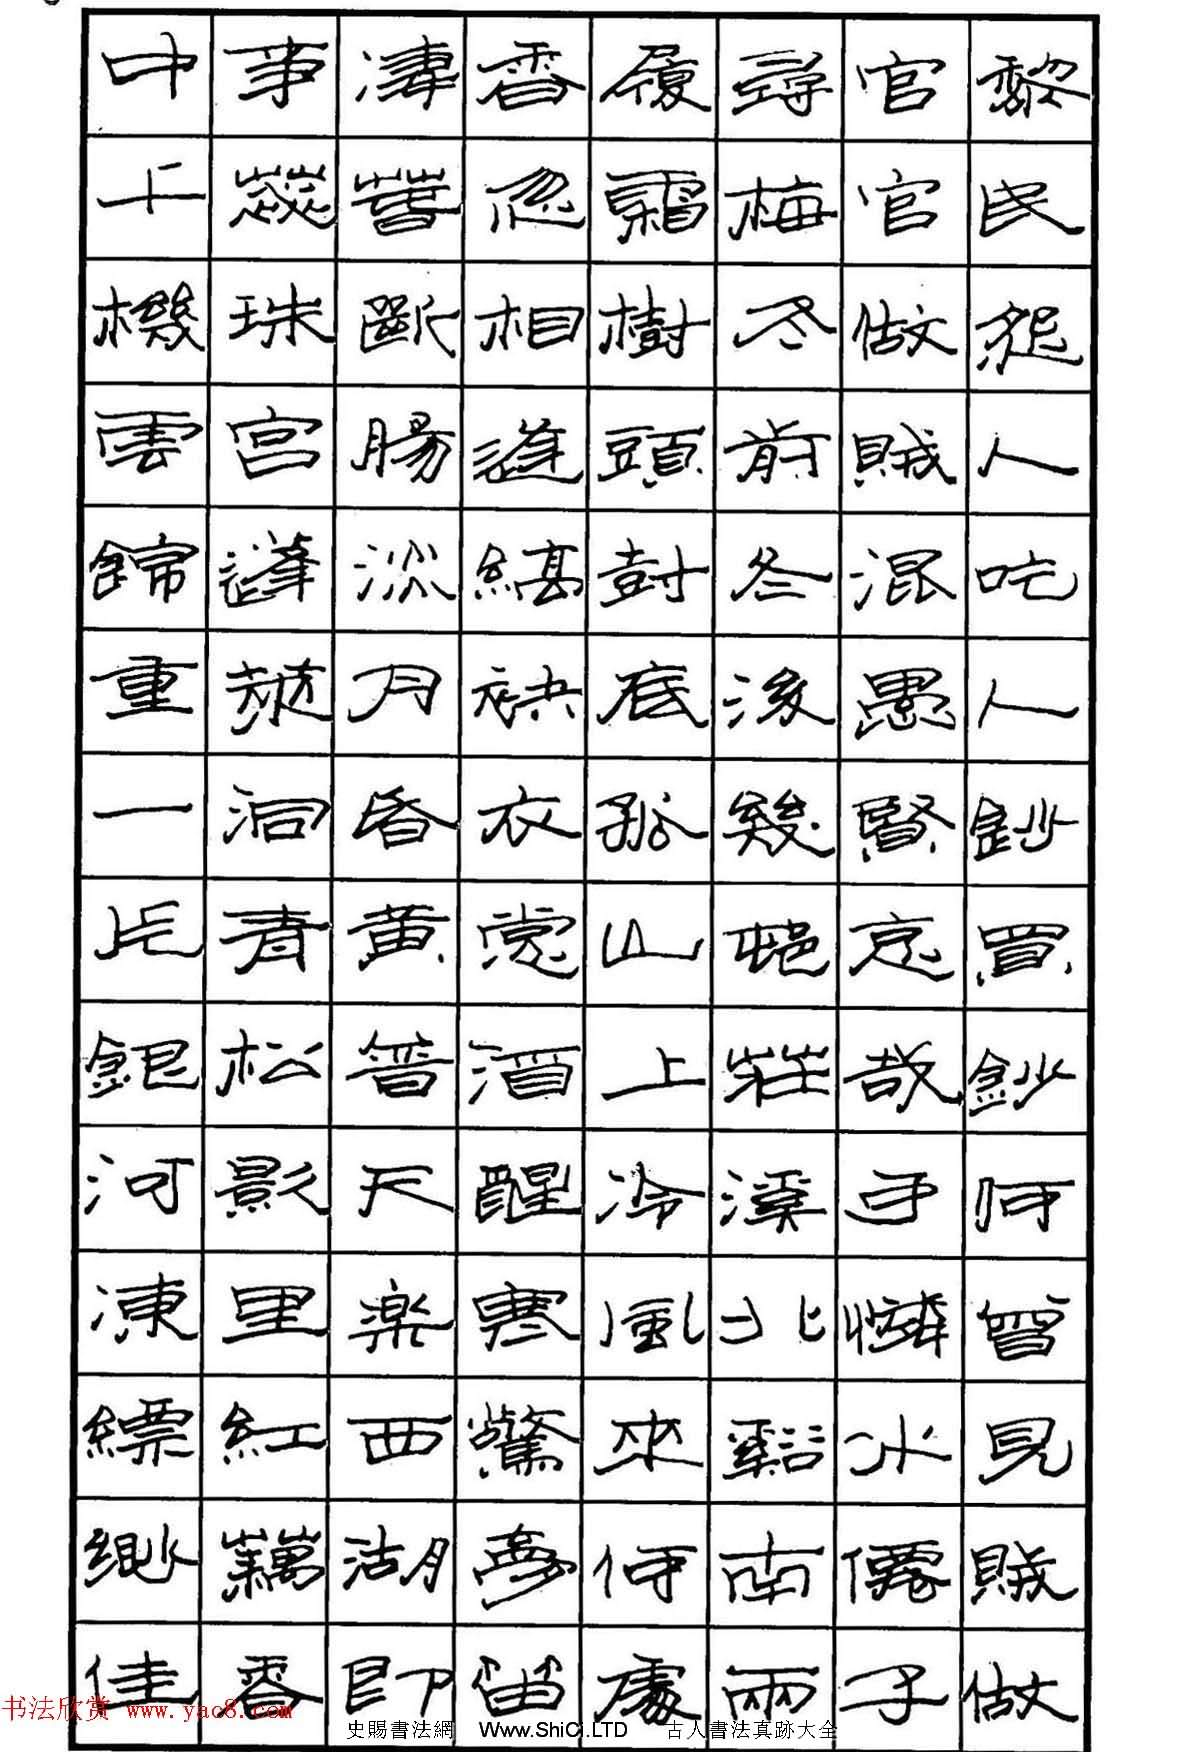 黎民怨人吃人鈔買鈔何曾見賊做
官官做賊混愚賢哀哉可憐水僊子
尋梅冬前冬後幾邨莊溪北谿南兩
履霜樹頭尌底孤山上冷風來何處
香忽相逢縞袂衣裳酒醒寒驚夢笛
淒萅斷腸淡月昏黃普天樂西湖即
事蕊珠宮蓬萊洞青松影里紅藕香
中千機雲錦重一片銀河凍縹緲佳
书法欣赏 www.yac8.com
史賜書法網 Www.ShiCi.LTD 古人書法真跡大全